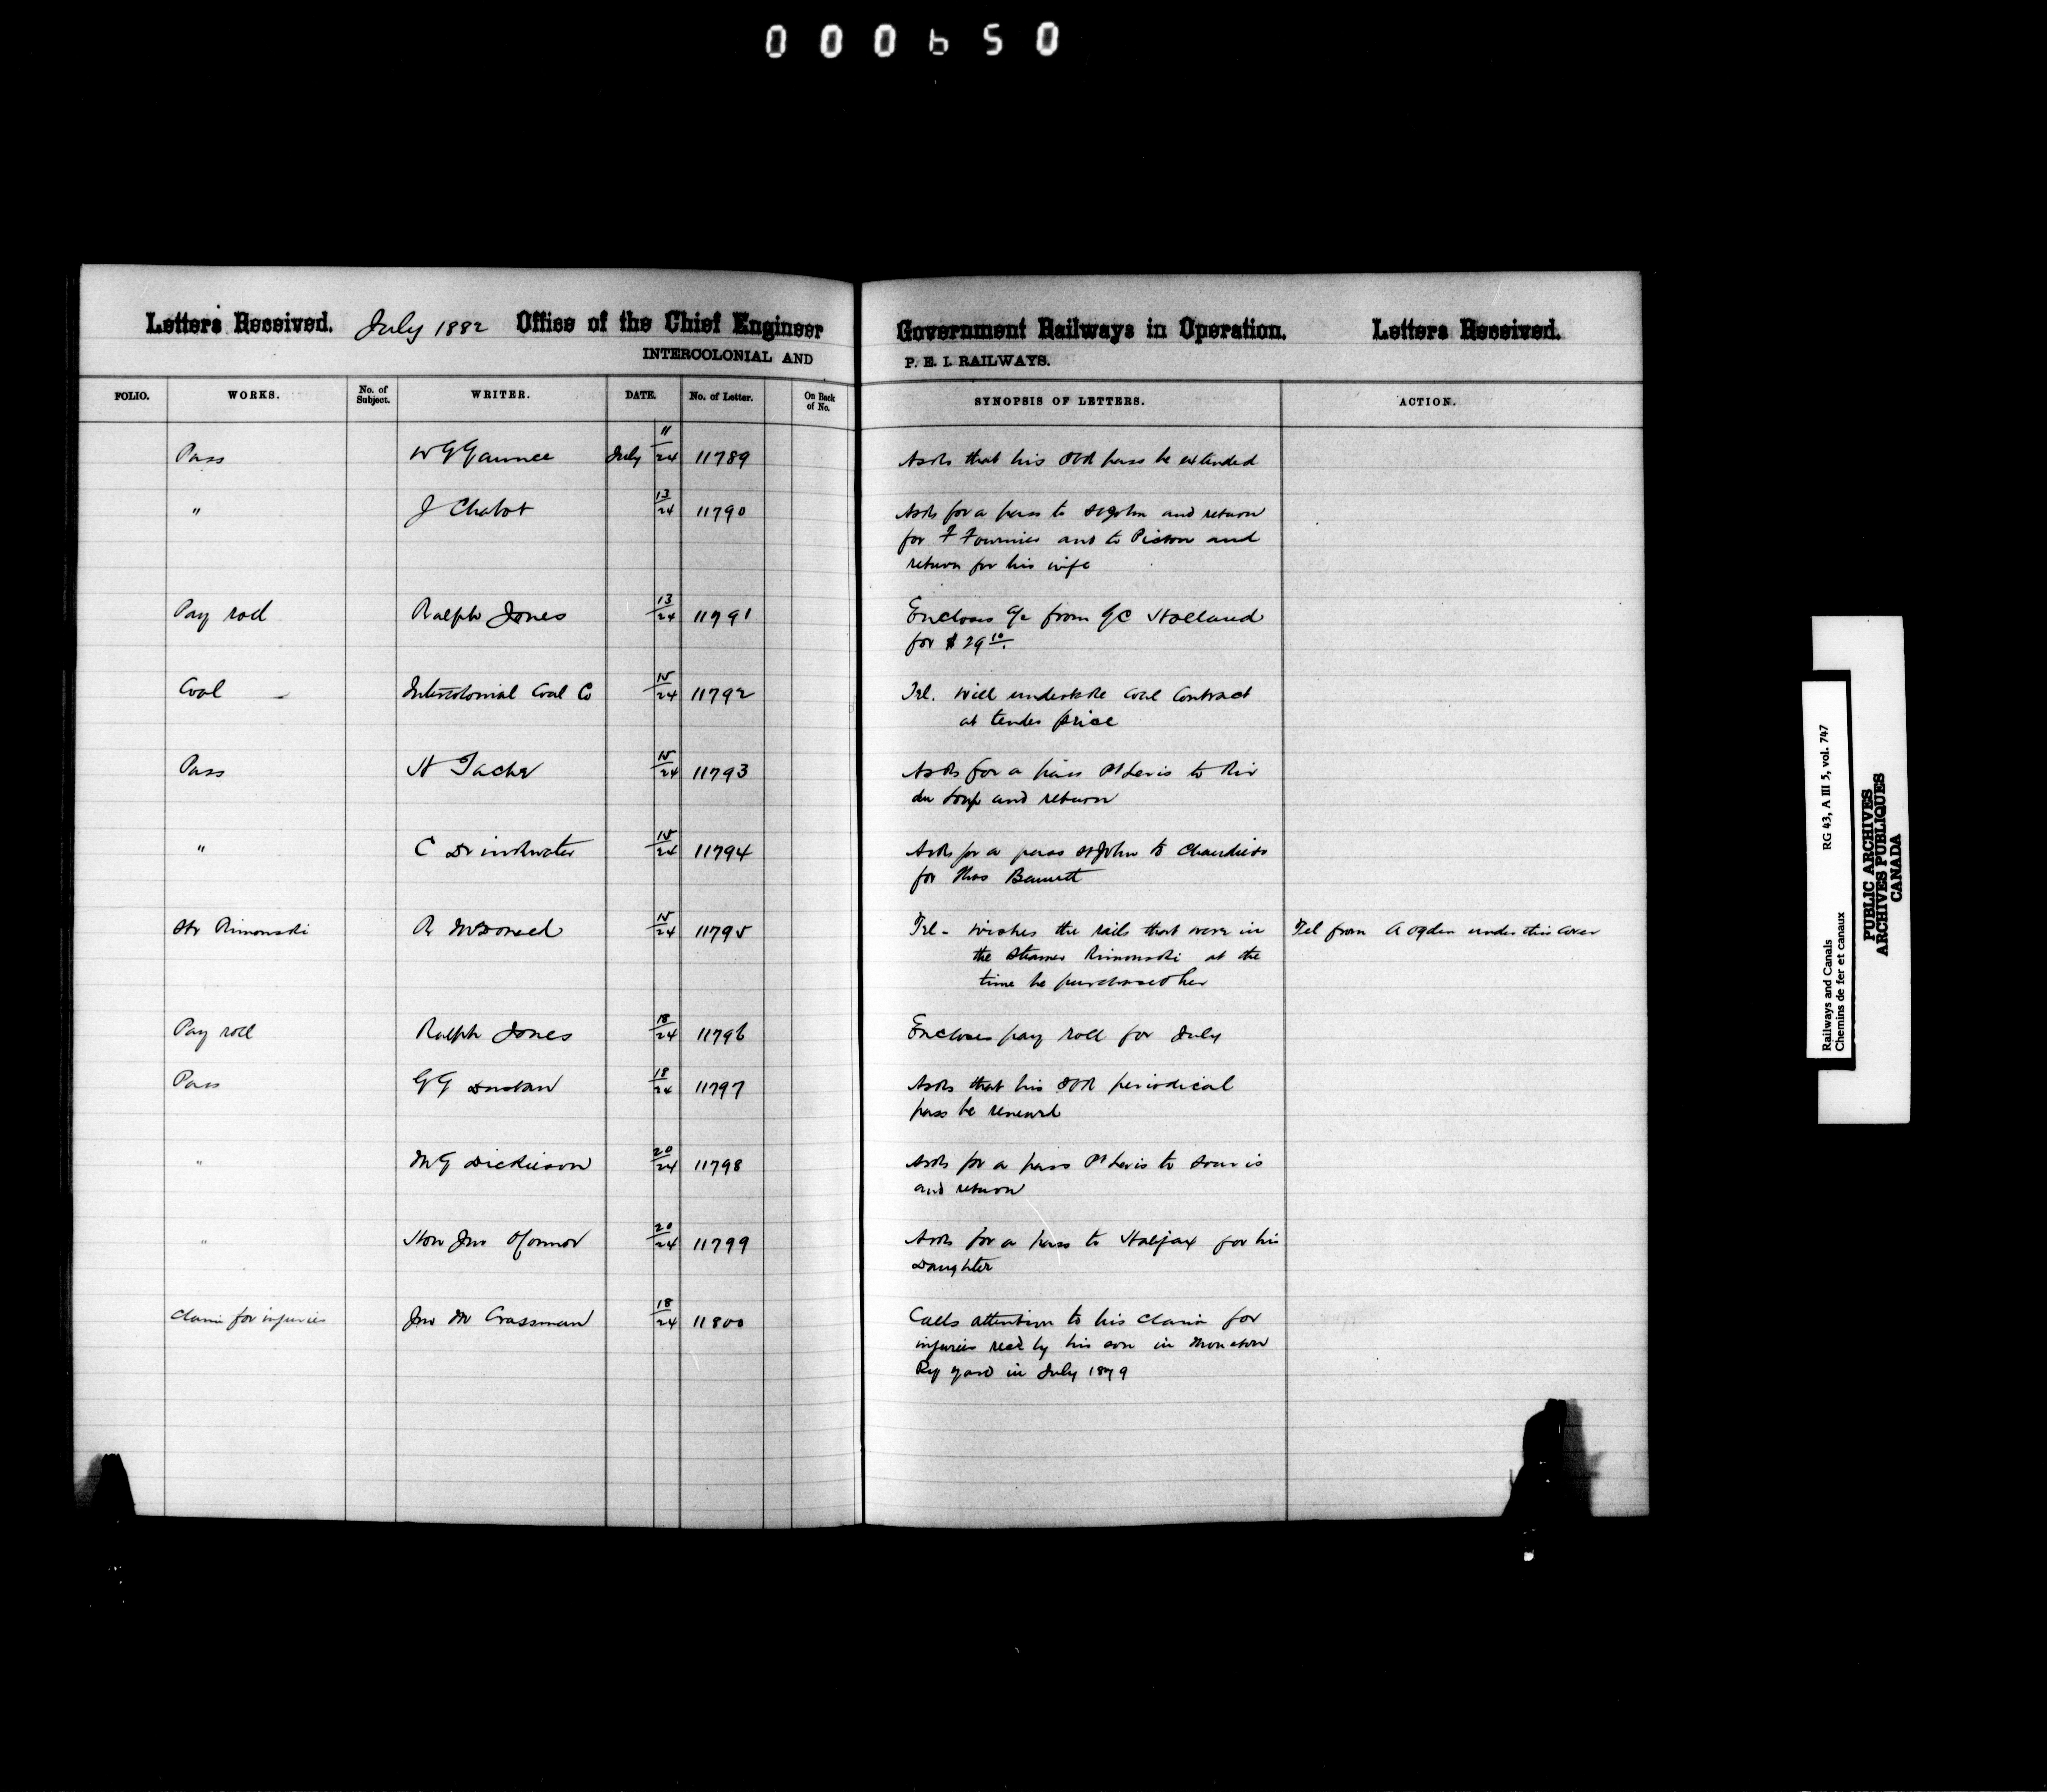 000650
Letters Received. July 1882 Office of the Chief Engineer Government Railways in Operation. Letters Received.
INTERCOLONIAL AND P. E. I. RAILWAYS.
FOLIO. WORKS. No. of Subject. WRITER. DATE. No. of Letter. On Back of No. SYNOPSIS OF LETTERS. ACTION.
Pass W G Gaunce July 11/24 11789 Asks that his ICR pass be extended
" J Chabot 13/24 11790 Asks for a pass to St John and return
for F Fournier and to Pictou and
return for his wife
Pay roll Ralph Jones 13/24 11791 Encloses a/c from G C Holland
for $29 10.
Coal Intercolonial Coal Co 15/24 11792 Tel. Will undertake coal contract
at tender price
Pass H Tache 15/24 11793 Asks for a pass Pt Levis to Riv
du Loup and return
" C Drinkwater 15/24 11794 Asks for a pass St John to Chaudiere
for Thos Barnett
Str Rimouski R McDonald 15/24 11795 Tel - Wishes the rails that were in Tel from A Ogden under this cover
the Steamer Rimouski at the
time he purchased her
Pay roll Ralph Jones 18/24 11796 Encloses pay roll for July
Pass G G Dustan 18/24 11797 Asks that his ICR periodical
pass be renewed
" M G Dickieson 20/24 11798 Asks for a pass Pt Levis to Souris
and return
" Hon Jno O'Connor 20/24 11799 Asks for a pass to Halifax for his
Daughter
Claim for injuries Jno M Crassman 18/24 11800 Calls attention to his claim for
injuries recd by his son in Moncton
Ry yard in July 1879
Railways and Canals RG 43, A III 5, vol. 747
Chemins de fer et canaux
PUBLIC ARCHIVES
ARCHIVES PUBLIQUES
CANADA